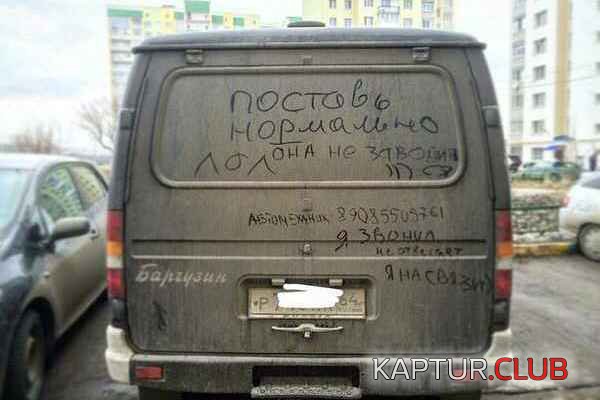 поставь
нормально
лол она не заводит
Автомеханик 89085505761
я звонил
не отвечает
я на связи
Баргузин
Р 64
KAPTUR.CLUB